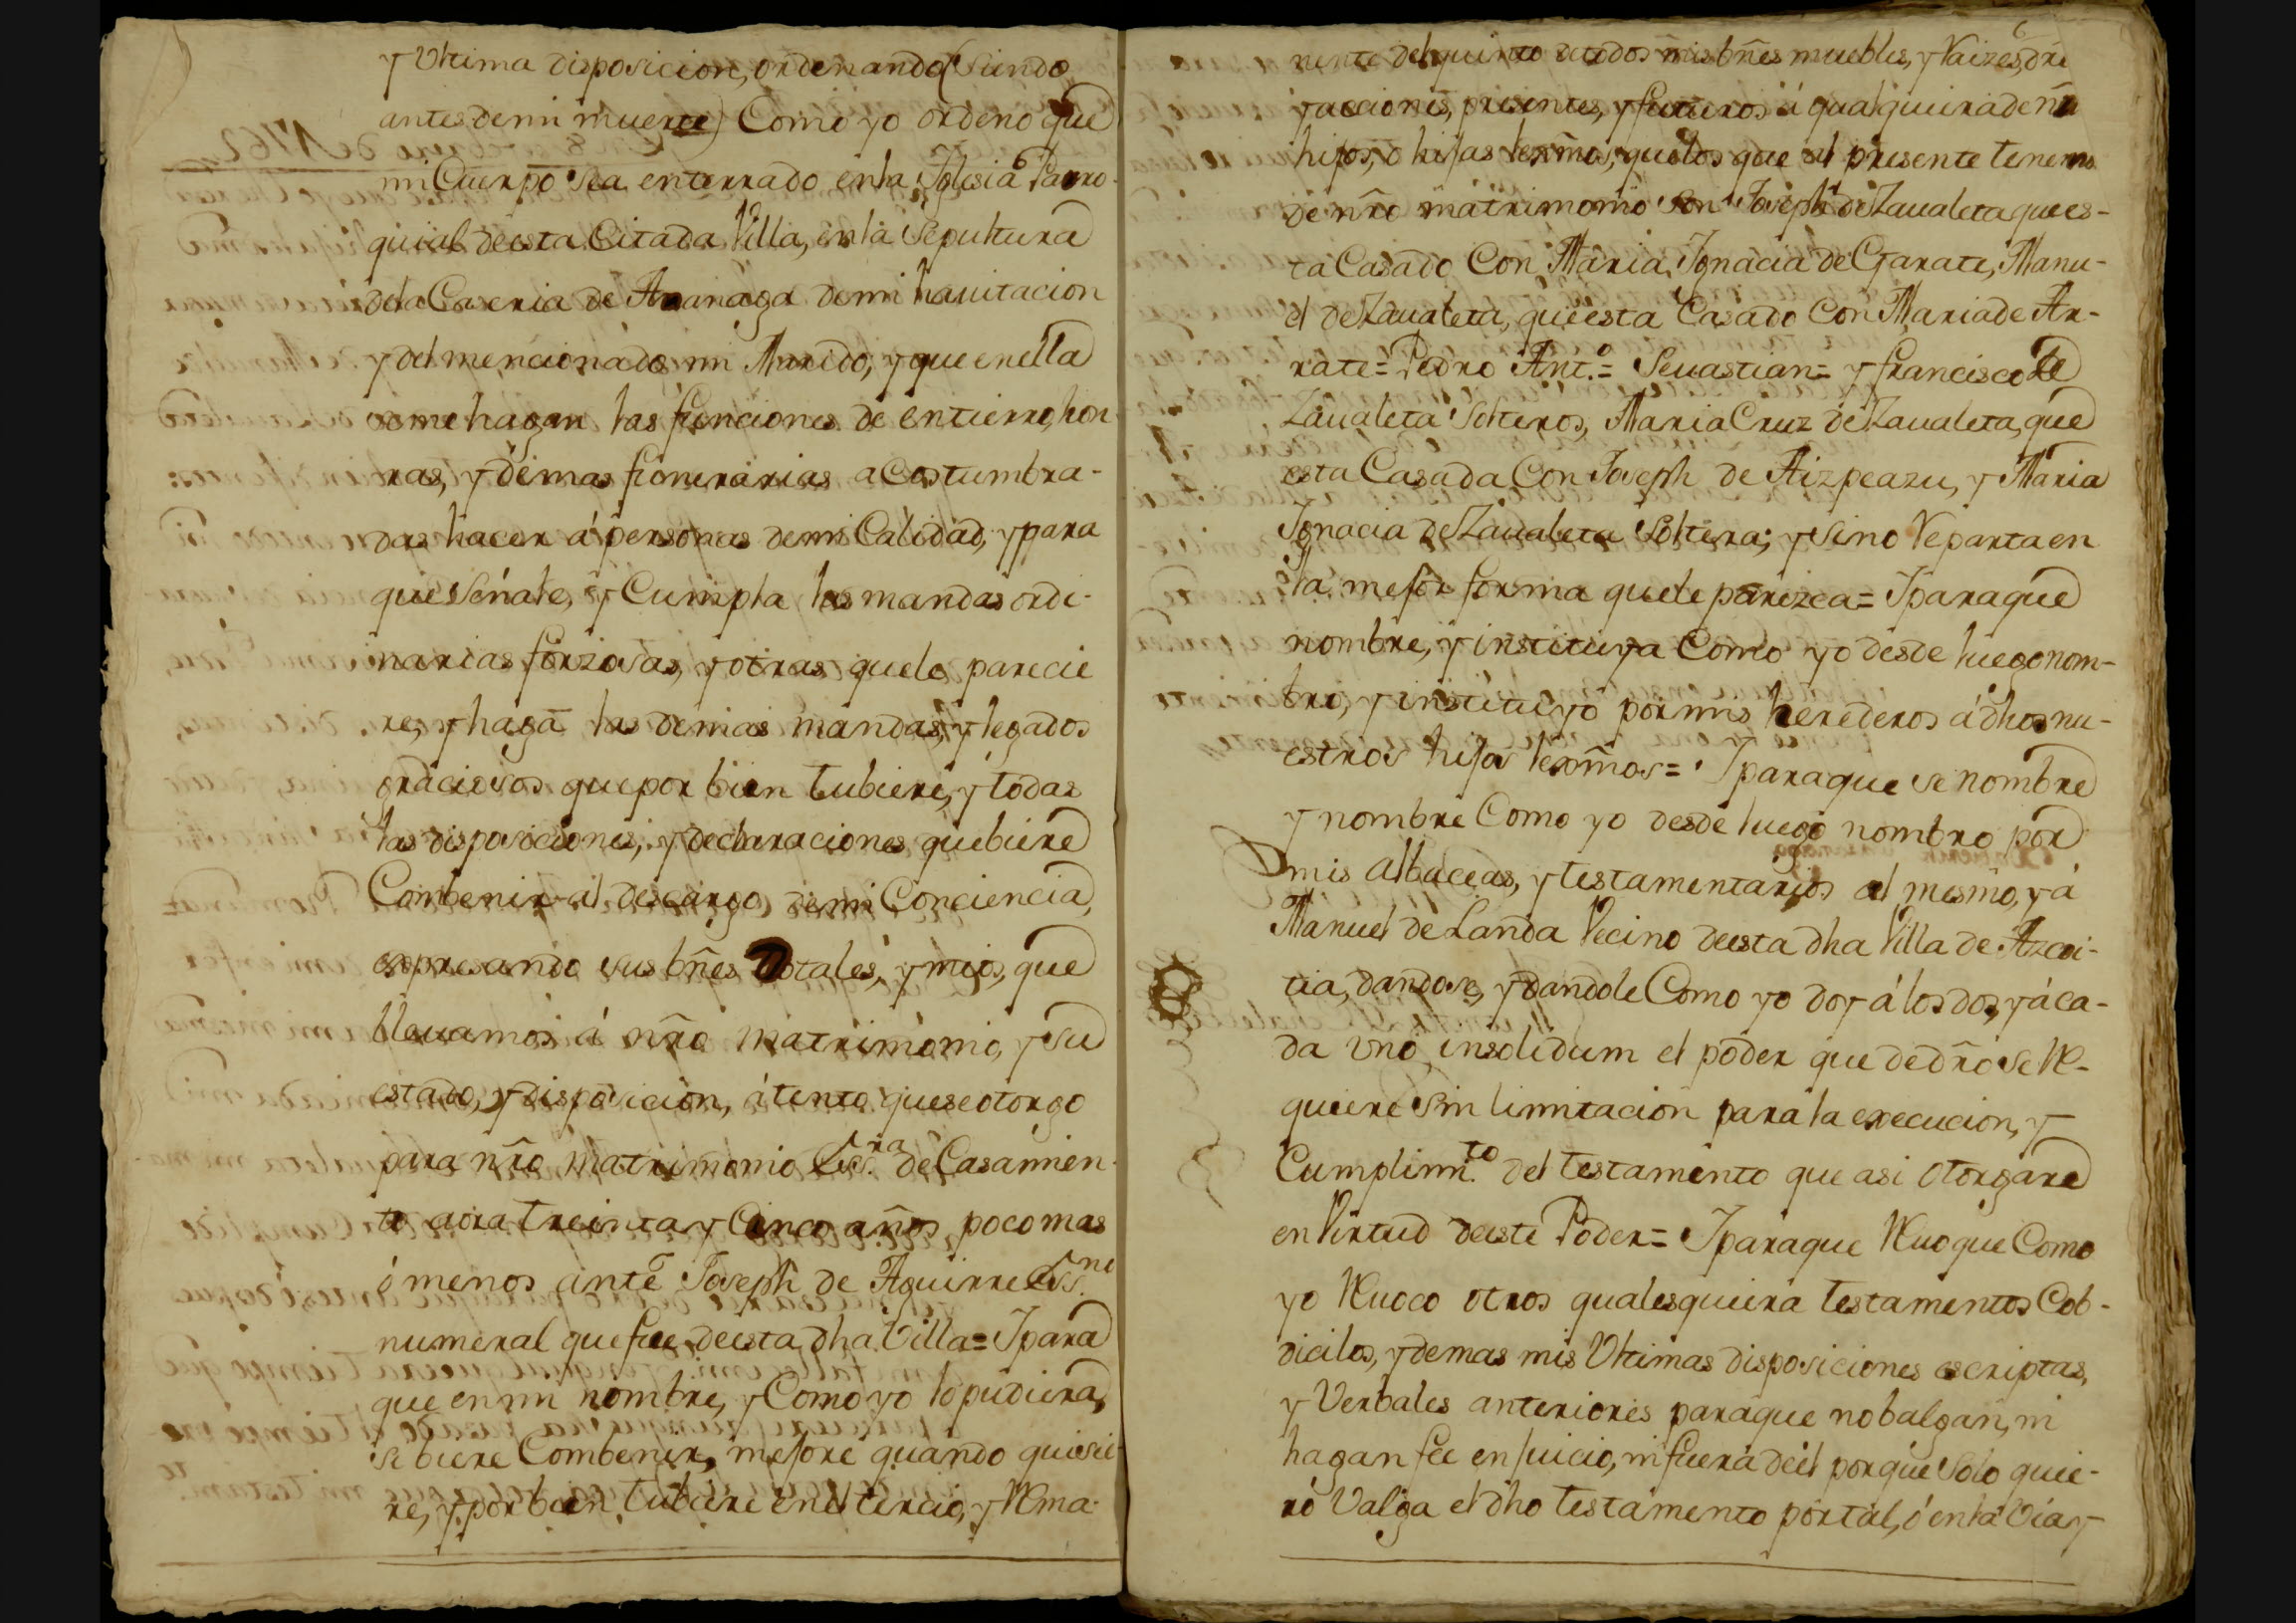 y Vltima disposicion, ordenando (Siendo
antes de mi muerte) Como yo ordeno que
mi Cuerpo Sea enterrado en la Iglesia Parro-
quial de esta Citada Villa, en la Sepultura
de la Caseria de Aranaga de mi hauitacion
y del mencionado mi Marido, y que en ella
se me hagan las funciones de entierro, hon-
ras, y demas funerarias acostumbra-
das hacer á personas de mi Calidad, y para
que Señale, y Cumpla las mandas ordi-
narias forzosas, y otras que le parecie
re, y haga las demas mandas, y legados
graciosos que por bien tubiere, y todas
las disposiciones, y declaraciones que biere
Conbenir al descargo de mi Conciencia,
expresando sus bn̄es Dotales, y mios, que
lleuamos á nr̄o matrimonio, y su
estado, y disposicion, atento que se otorgo
para nr̄o matrimonio Ess.ra de Casamien-
to aora treinta y Cinco años poco mas
ó menos ante Joseph de Aguirre Ess.no
numeral que fue de esta dha Villa= Y para
que en mi nombre, y Como yo lo pudiera,
si biere Combenir, mejore quando quisie-
re, y por bien tubiere en el tercio, y Rema-
nente del quinto de todos mis bn̄es muebles, y Raizes, dr̄e
y acciones, presentes, y futuros á qualquiera de nr̄
hijos, ó hijas lexm̄os, que los que al presente tenemos
de nr̄o matrimonio son Joseph de Zaualeta que es-
ta Casado Con Maria Ignacia de Garate, Manu-
el de Zaualeta, que esta Casado Con Maria de Ar-
rate= Pedro Ant.o= Seuastian= y francisco de
Zaualeta Solteros, Maria Cruz de Zaualeta, que
esta Casada Con Joseph de Aizpeazu, y Maria
Ignacia de Zaualeta Soltera; y Sino Reparta en
la mejor forma que le parezca= Y para que
nombre, y instituya Como yo desde luego nom-
bro, y instituyo por mis herederos á dhos nu-
estros hijos lexm̄os= Y para que se nombre
y nombre Como yo desde luego nombro por
mis albaceas, y testamentarios al mesmo, y á
Manuel de Landa Vecino de esta dha Villa de Azcoi-
tia, dandose, y dandole Como yo doy á los dos, y á ca-
da vno insolidum el poder que de dr̄o se Re-
quiere sin limitacion para la execucion, y
Cumplim.to del testamento que asi otorgare
en Virtud de este Poder= Y para que Reuoque Como
yo Reuoco otros qualesquiera testamentos Cob-
dicilos, y demas mis Vltimas disposiciones escriptas,
y Verbales anteriores para que no balgan, ni
hagan fee en juicio, ni fuera de el porque Solo quie-
ro Valga el dho testamento por tal, ó en la Via, y